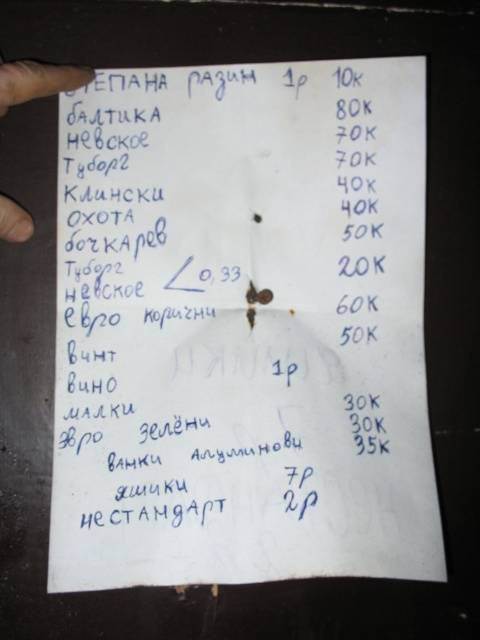 СТЕПАНА РАЗИН 1р 10к
БАЛТИКА 80к
НЕВСКОЕ 70к
ТУБОРГ 70к
КЛИНСКИ 40к
ОХОТА 40к
БОЧКАРЕВ 50к
ТУБОРГ 0,33 20к
НЕВСКОЕ
ЕВРО КОРИЧНИ 60к
ВИНТ 50к
ВИНО 1р
МАЛКИ 30к
ЭВРО ЗЕЛЁНИ 30к
ВАНКИ АЛУМИНОВИ 35к
ЯШИКИ 7р
НЕСТАНДАРТ 2р